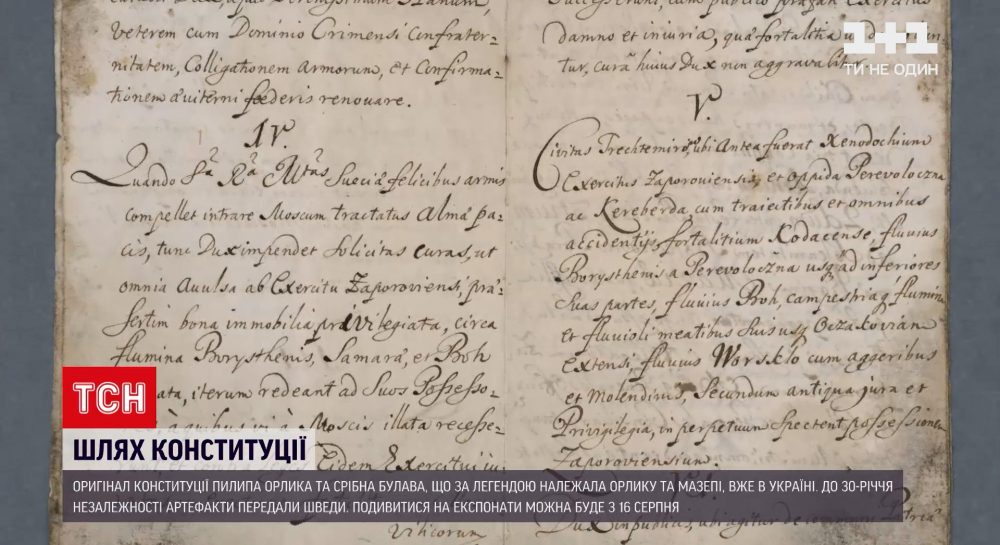 veterem cum Dominio Crimensi Confrater-
nitatem, Colligationem Armorum, et Confirma-
tionem æviterni fœderis renovare.
IV.
Quando Sa Ra Mtas Sueciæ felicibus armis
compellet intrare Moscum tractatus Almæ pa-
cis, tunc Dux impendet solicitas curas, ut
omnia Avulsa ab Exercitu Zaporoviensi, præ-
sertim bona immobilia privilegiata, circa
flumina Borysthenis, Samaræ, et Boh
iterum redeant ad Suos Possesso-
à quibus vi à Moscis illata recesse-
Eidem Exercitui
damno et iniuria, qua fortalitia
tur, cura huius Dux non aggravabitur.
V.
Civitas Trechtemirow, ubi Antea fuerat Xenodochium
Exercitus Zaporoviensis, et oppida Perevoloczna
ac Kereberda, cum traiectibus et omnibus
accidentijs, fortalitium Kodacense, fluvius
Borysthenis a Perevoloczna usq ad inferiores
suas partes, fluvius Boh, campestria q flumina
et fluvioli meatibus suis usq Oczakoviam
extensi, fluvius Worsklo cum aggeribus
et Molendinis, Secundum antiqua jura et
Privigilegia, in perpetuum spectent possessionem
Zaporoviensium.
1+1
ТИ НЕ ОДИН
ТСН
ШЛЯХ КОНСТИТУЦІЇ
ОРИГІНАЛ КОНСТИТУЦІЇ ПИЛИПА ОРЛИКА ТА СРІБНА БУЛАВА, ЩО ЗА ЛЕГЕНДОЮ НАЛЕЖАЛА ОРЛИКУ ТА МАЗЕПІ, ВЖЕ В УКРАЇНІ. ДО 30-РІЧЧЯ
НЕЗАЛЕЖНОСТІ АРТЕФАКТИ ПЕРЕДАЛИ ШВЕДИ. ПОДИВИТИСЯ НА ЕКСПОНАТИ МОЖНА БУДЕ З 16 СЕРПНЯ